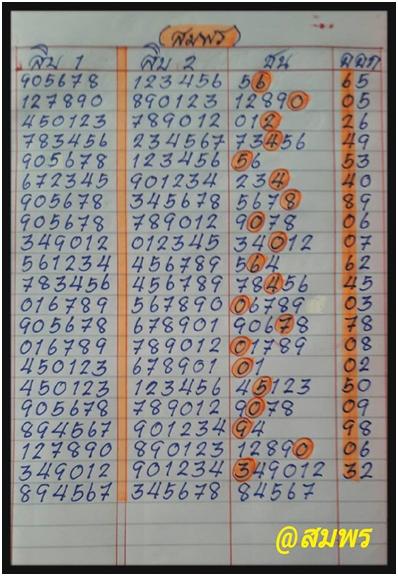 สมพร
สิบ 1 สิบ 2 ชน ออก
905678 123456 56 65
127890 890123 12890 05
450123 789012 012 26
783456 234567 73456 49
905678 123456 56 53
672345 901234 234 40
905678 345678 5678 89
905678 789012 9078 06
349012 012345 34012 07
561234 456789 564 62
783456 456789 78456 45
016789 567890 06789 03
905678 678901 90678 78
016789 789012 01789 08
450123 678901 01 02
450123 123456 45123 50
905678 789012 9078 09
894567 901234 94 98
127890 890123 12890 06
349012 901234 349012 32
894567 345678 84567
@สมพร